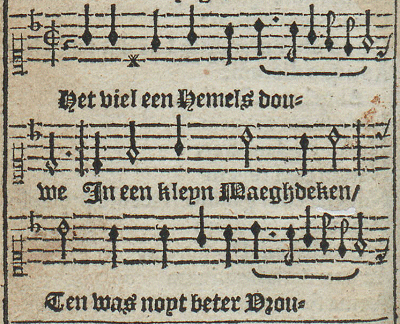 Het viel een Hemels dou-
we In een kleyn Maeghdeken/
Ten was noyt beter Vrou-